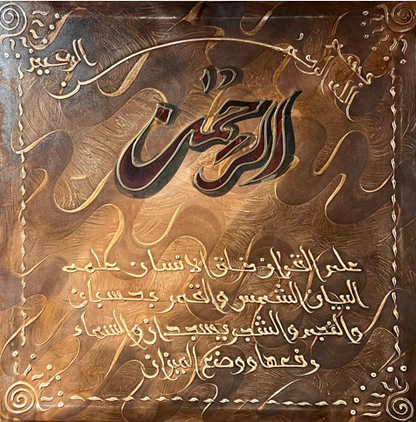 بسم الله الرحمن الرحيم
الرحمن
علم القران خلق الانسان علمه
البيان الشمس والقمر بحسبان
والنجم والشجر يسجدان والسماء
رفعها ووضع الميزان